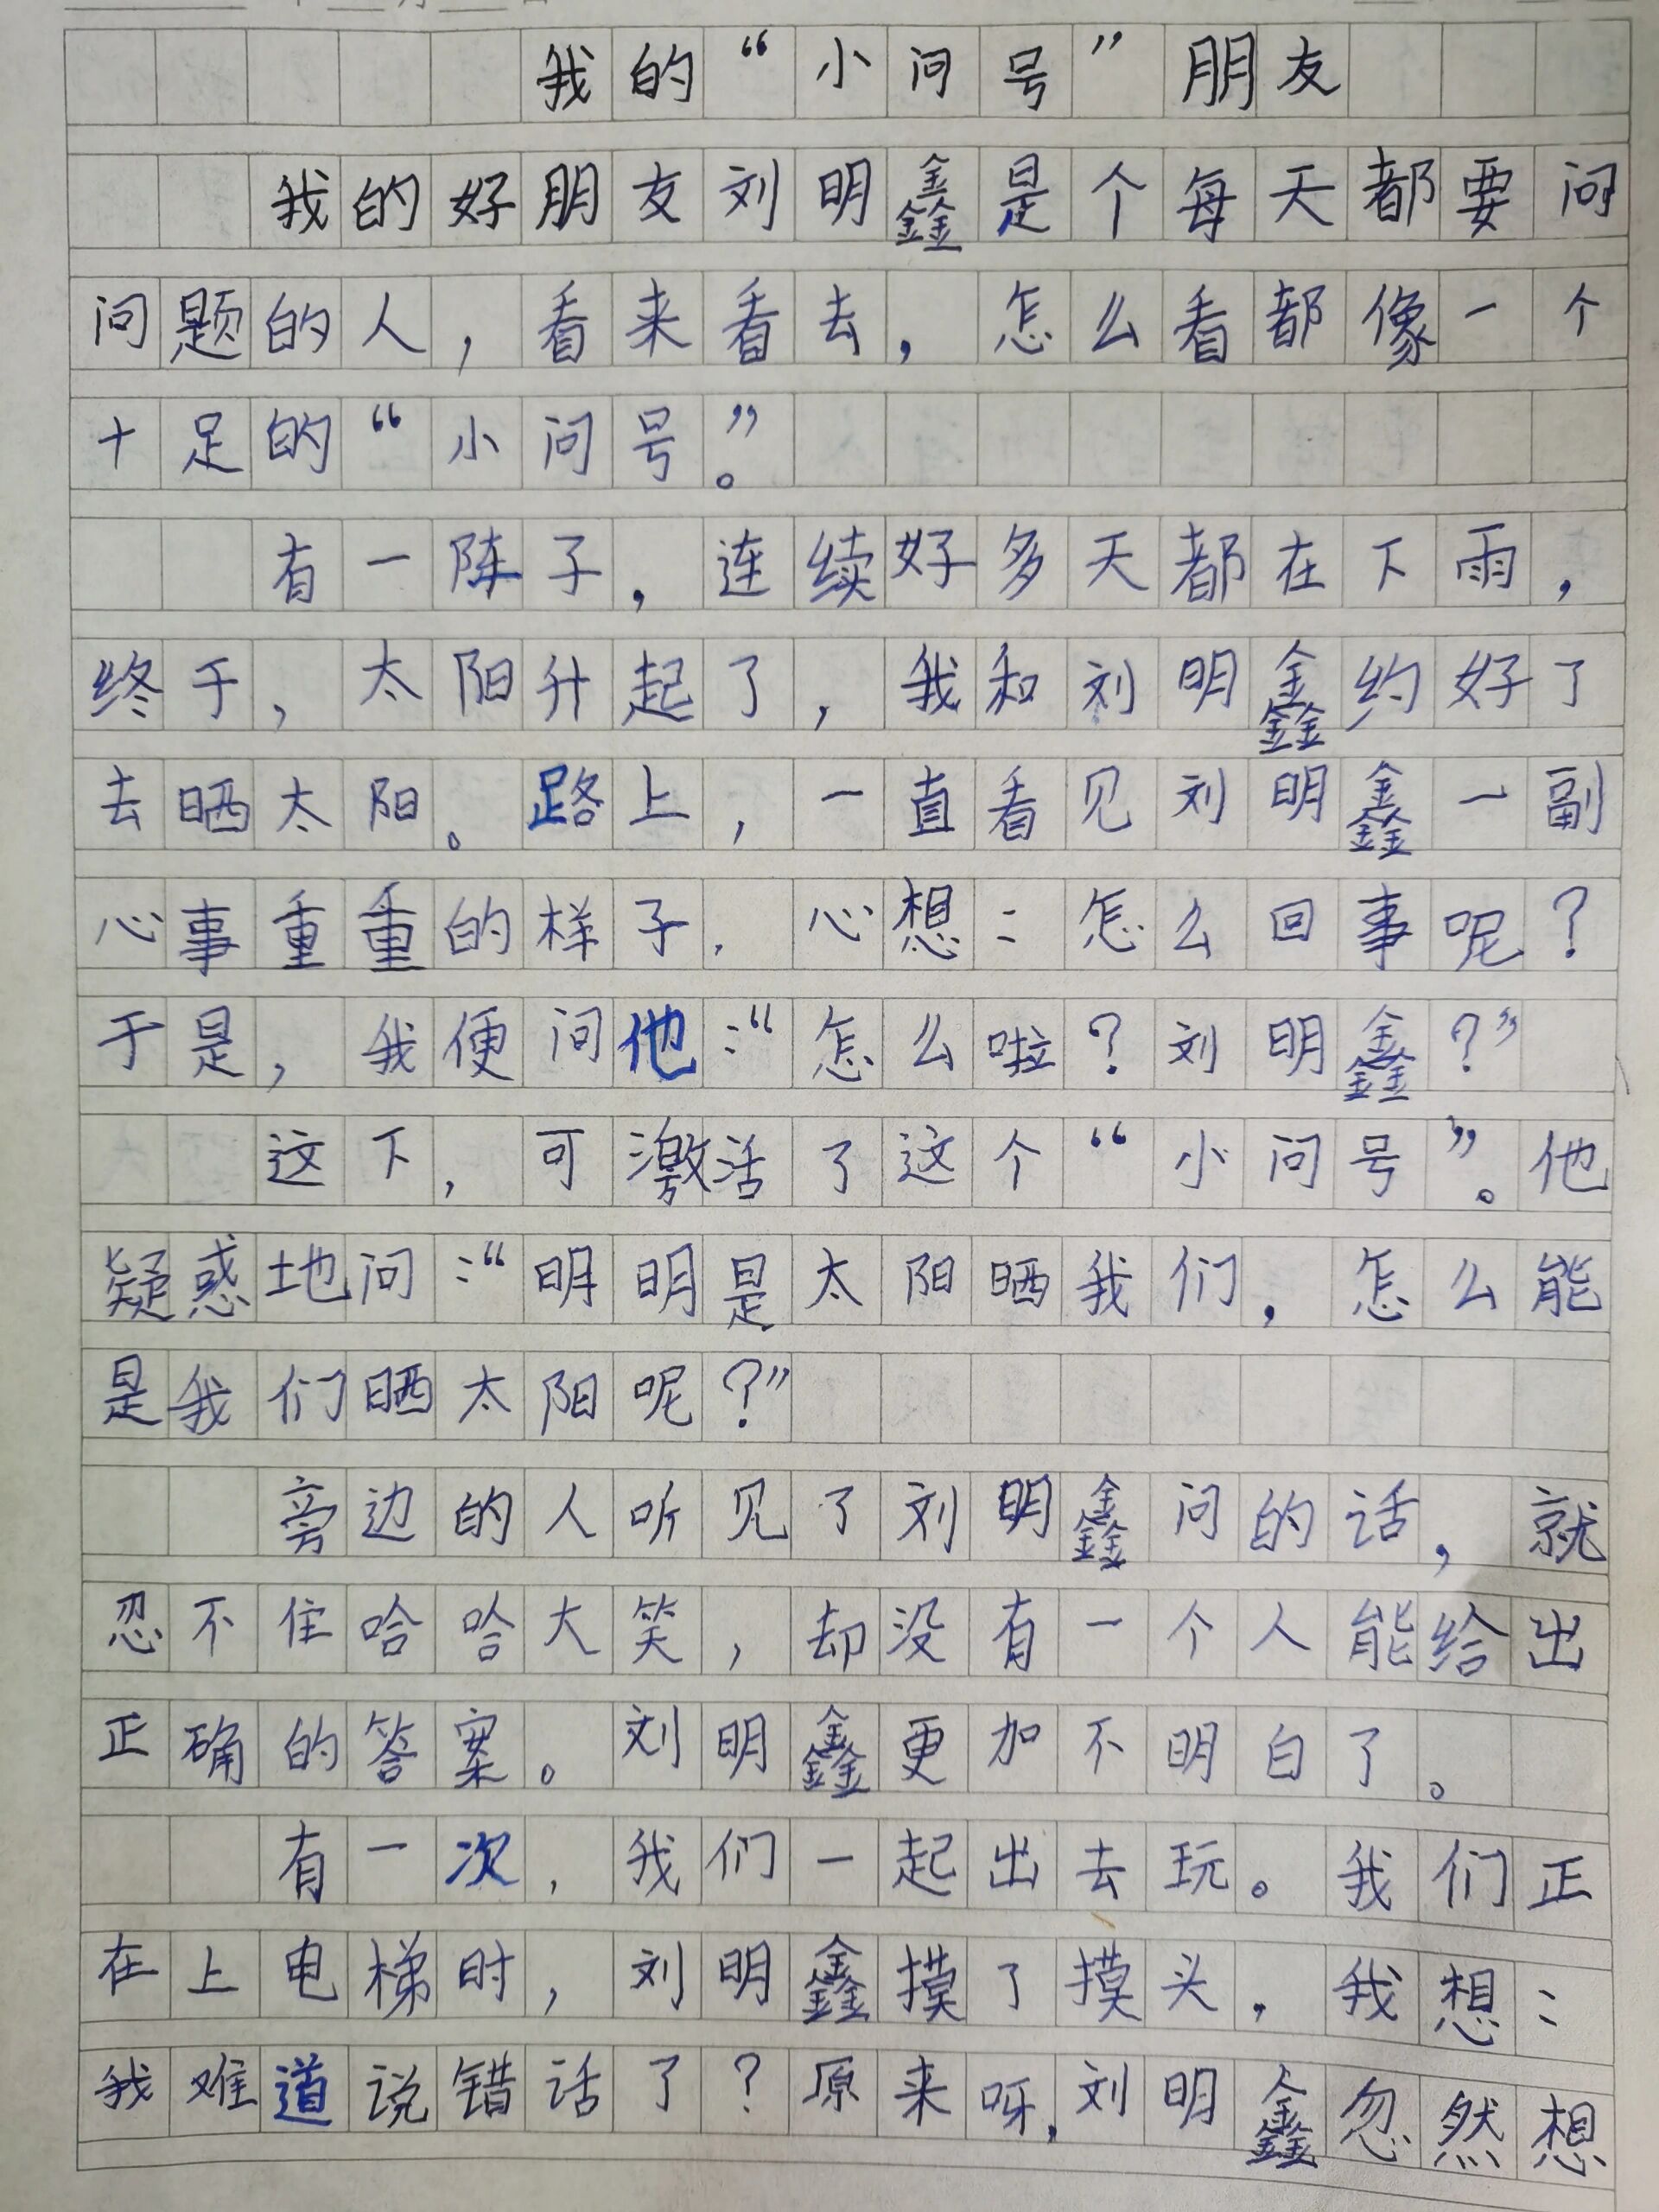 我的“小问号”朋友
我的好朋友刘明鑫是个每天都要问
问题的人，看来看去，怎么看都像一个
十足的“小问号。”
有一阵子，连续好多天都在下雨，
终于，太阳升起了，我和刘明鑫约好了
去晒太阳。路上，一直看见刘明鑫一副
心事重重的样子，心想：怎么回事呢？
于是，我便问他：“怎么啦？刘明鑫？”
这下，可激活了这个“小问号”。他
疑惑地问：“明明是太阳晒我们，怎么能
是我们晒太阳呢？”
旁边的人听见了刘明鑫问的话，就
忍不住哈哈大笑，却没有一个人能给出
正确的答案。刘明鑫更加不明白了。
有一次，我们一起出去玩。我们正
在上电梯时，刘明鑫摸了摸头，我想：
我难道说错话了？原来呀，刘明鑫忽然想